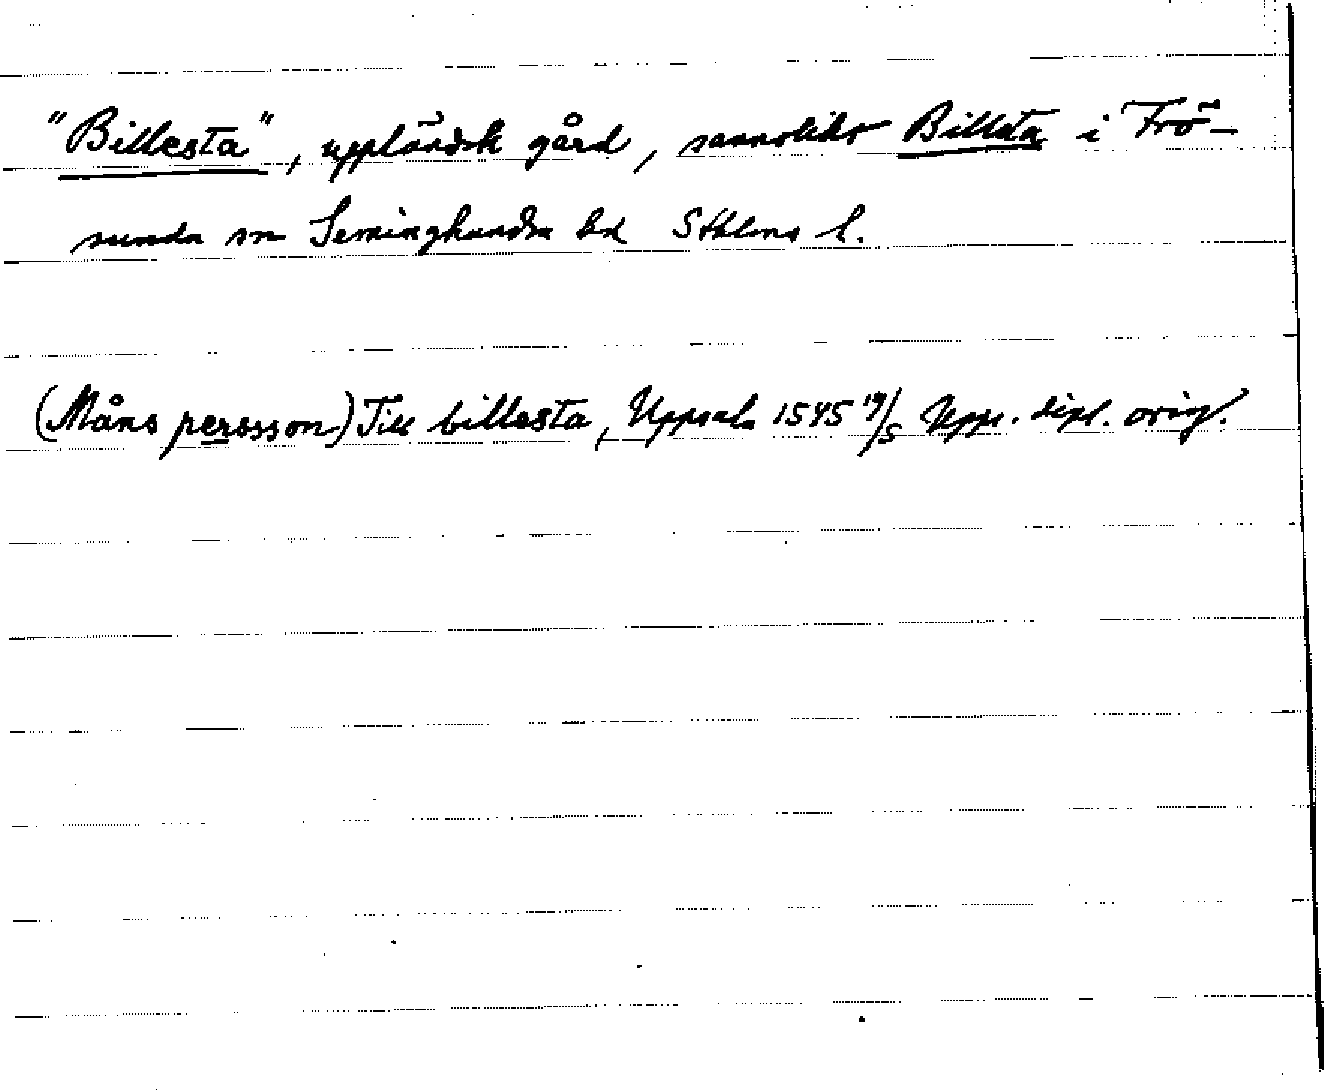 "Billesta", uppländsk gård, sannolikt Billsta i Frö-
sunda sn Seminghundra hd Sthlms l.
(Måns persson) Till billesta, Uppsala 1545 19/5 Upps. dipl. orig.